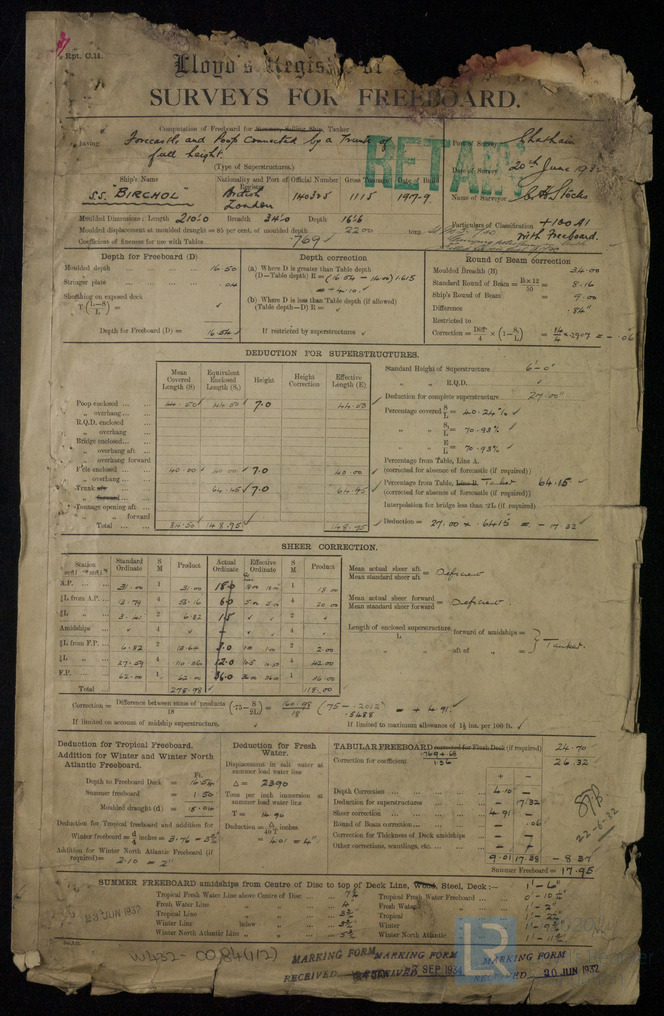 Rpt. C.14.
Lloyd's Register of
SURVEYS FOR FREEBOARD.
Computation of Freeboard for Steamer, Sailing Ship, Tanker
having Forecastle and Poop connected by a Trunk of
full height.
(Type of Superstructures.)
RETAIN
Port of Survey Chatham
Date of Survey 20th June 1932
Name of Surveyor
Particulars of Classification +100A1
with Freeboard.
Ship's Name Nationality and Port of Registry Official Number Gross Tonnage Date of Build
S.S. "BIRCHOL" British London 140305 1115 1917-9
Moulded Dimensions: Length 210.0 Breadth 34.0 Depth 16.6
Moulded displacement at moulded draught = 85 per cent. of moulded depth 2200 tons
Coefficient of fineness for use with Tables .769
Depth for Freeboard (D)
Moulded depth 16.50
Stringer plate .04
Sheathing on exposed deck
Depth for Freeboard (D) = 16.54
Depth correction
(a) Where D is greater than Table depth
(D—Table depth) R = (16.54 - 14.00) 1.615
= + 4.10
(b) Where D is less than Table depth (if allowed)
(Table depth—D) R =
If restricted by superstructures
Round of Beam correction
Moulded Breadth (B) 34.00
Standard Round of Beam = B×12/50 = 8.16
Ship's Round of Beam = 9.00
Difference .84"
Restricted to
Correction = Diff/4 × (1-S₁/L) = .84/4 × .2907 = - .06
DEDUCTION FOR SUPERSTRUCTURES.
Mean Covered Length (S) Equivalent Enclosed Length (S₁) Height Height Correction Effective Length (E)
Poop enclosed 44.50 44.50 7.0 44.50
" overhang
R.Q.D. enclosed
" overhang
Bridge enclosed
" overhang aft
" overhang forward
F'cle enclosed 40.00 40.00 7.0 40.00
" overhang
Trunk aft 64.45 7.0 64.45
" forward
Tonnage opening aft
" forward
Total 84.50 148.95 148.95
Standard Height of Superstructure 6'-0"
" " R.Q.D.
Deduction for complete superstructure 27.00"
Percentage covered S/L = 40.24%
" " S₁/L = 70.93%
" " E/L = 70.93%
Percentage from Table, Line A.
(corrected for absence of forecastle (if required))
Percentage from Table, Line B. Tanker 64.15
(corrected for absence of forecastle (if required))
Interpolation for bridge less than ·2L (if required)
Deduction = 27.00 × .6415 = - 17.32
SHEER CORRECTION.
Station Standard Ordinate S M Product Actual Ordinate Effective Ordinate S M Product
A.P. 31.00 1 31.00 18.0 1 18.00
⅙L from A.P. 13.79 4 55.16 6.0 4 20.00
⅓L " 3.41 2 6.82 1.5 2
Amidships 4 4
⅓L from F.P. 6.82 2 13.64 3.0 2 2.00
⅙L " 27.59 4 110.36 12.0 4 42.00
F.P. 62.00 1 62.00 36.0 1 36.00
Total 278.98 118.00
Mean actual sheer aft / Mean standard sheer aft = Deficient
Mean actual sheer forward / Mean standard sheer forward = Deficient
Length of enclosed superstructure / L forward of amidships =
" " aft of " = Tanker
Correction = Difference between sums of products / 18 (·75 - S/2L) = 160.98/18 (.75 - .2012) .5488 = + 4.91
If limited on account of midship superstructure.
If limited to maximum allowance of 1½ ins. per 100 ft.
Deduction for Tropical Freeboard.
Addition for Winter and Winter North
Atlantic Freeboard.
Ft.
Depth to Freeboard Deck = 16.54
Summer freeboard = 1.50
Moulded draught (d) = 15.04
Deduction for Tropical freeboard and addition for
Winter freeboard = d/4 inches = 3.76 = 3¾"
Addition for Winter North Atlantic Freeboard (if
required) = 2.10 = 2"
Deduction for Fresh
Water.
Displacement in salt water at
summer load water line
Δ = 2390
Tons per inch immersion at
summer load water line
T = 14.90
Deduction = Δ/40T inches
= 4.01 = 4"
TABULAR FREEBOARD corrected for Flush Deck (if required) 24.70
Correction for coefficient .769+.68/1.36 26.32
+ -
Depth Correction 4.10
Deduction for superstructures 17.32
Sheer correction 4.91
Round of Beam correction .06
Correction for Thickness of Deck amidships
Other corrections, scantlings, etc.
9.01 17.38 - 8.37
Summer Freeboard = 17.95
22-6-32
SUMMER FREEBOARD amidships from Centre of Disc to top of Deck Line, Wood, Steel, Deck:— 1'-6"
Tropical Fresh Water Line above Centre of Disc 7¾ Tropical Fresh Water Freeboard 0'-10¼"
Fresh Water Line " 4" Fresh Water 1'-2"
Tropical Line " 3¾ Tropical 1'-2¼"
Winter Line below " 3¾ Winter 1'-9¾"
Winter North Atlantic Line " 5¾ Winter North Atlantic 1'-11¾"
23 JUN 1932
W432-0084(1/2)
MARKING FORM
RECEIVED
MARKING FORM
RECEIVED SEP 1934
MARKING FORM
RECEIVED 20 JUN 1932
LR